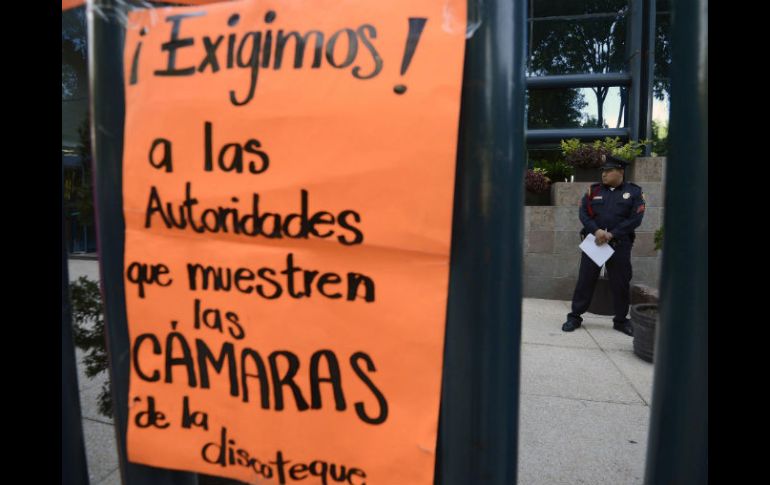 ¡Exigimos!
a las
Autoridades
que muestren
las
CÁMARAS
de la
discoteque